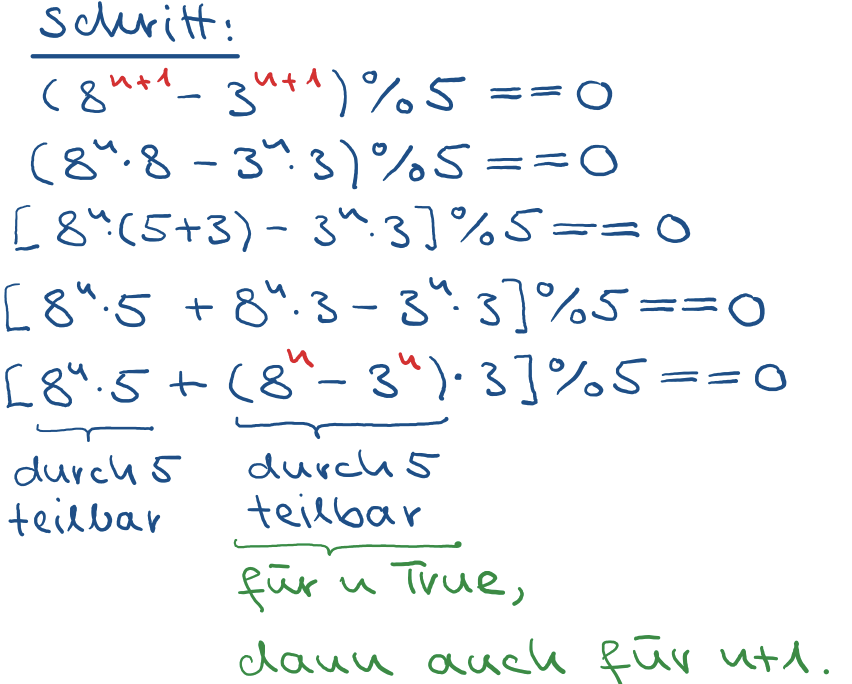 Schritt:
(8ⁿ⁺¹ - 3ⁿ⁺¹)%5 == 0
(8ⁿ·8 - 3ⁿ·3)%5 == 0
[8ⁿ·(5+3) - 3ⁿ·3]%5 == 0
[8ⁿ·5 + 8ⁿ·3 - 3ⁿ·3]%5 == 0
[8ⁿ·5 + (8ⁿ - 3ⁿ)·3]%5 == 0
durch 5 durch 5
teilbar teilbar
für n True,
dann auch für n+1.